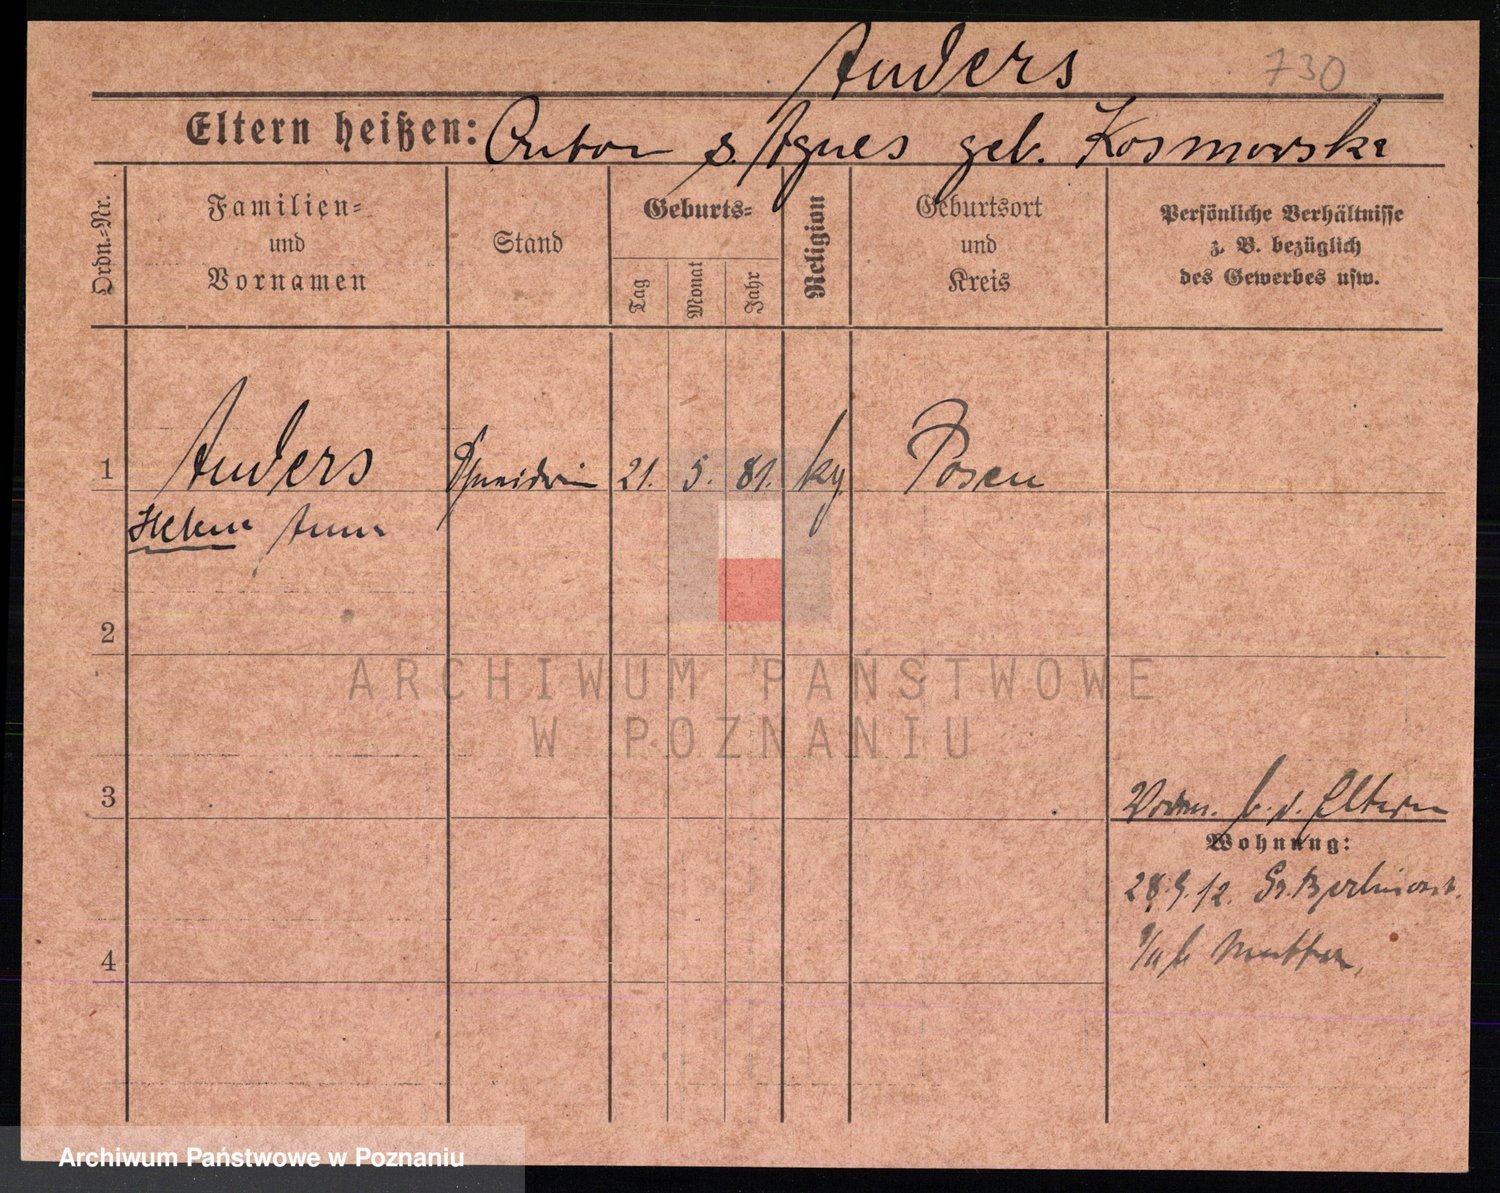 Anders 730
Eltern heißen: Anton u. Agnes geb. Kosmowska
Ordn.=Nr.
Familien=
und
Vornamen
Stand
Geburts=
Tag
Monat
Jahr
Religion
Geburtsort
und
Kreis
Persönliche Verhältnisse
z. B. bezüglich
des Gewerbes usw.
1 Anders Schneiderin 21. 5. 81. kg. Posen
Helene Anna
2
ARCHIWUM PAŃSTWOWE
W POZNANIU
3
b. d. Eltern
Wohnung:
28.9.12. Gr. Berlinerst.
b Mutter
4
Archiwum Państwowe w Poznaniu